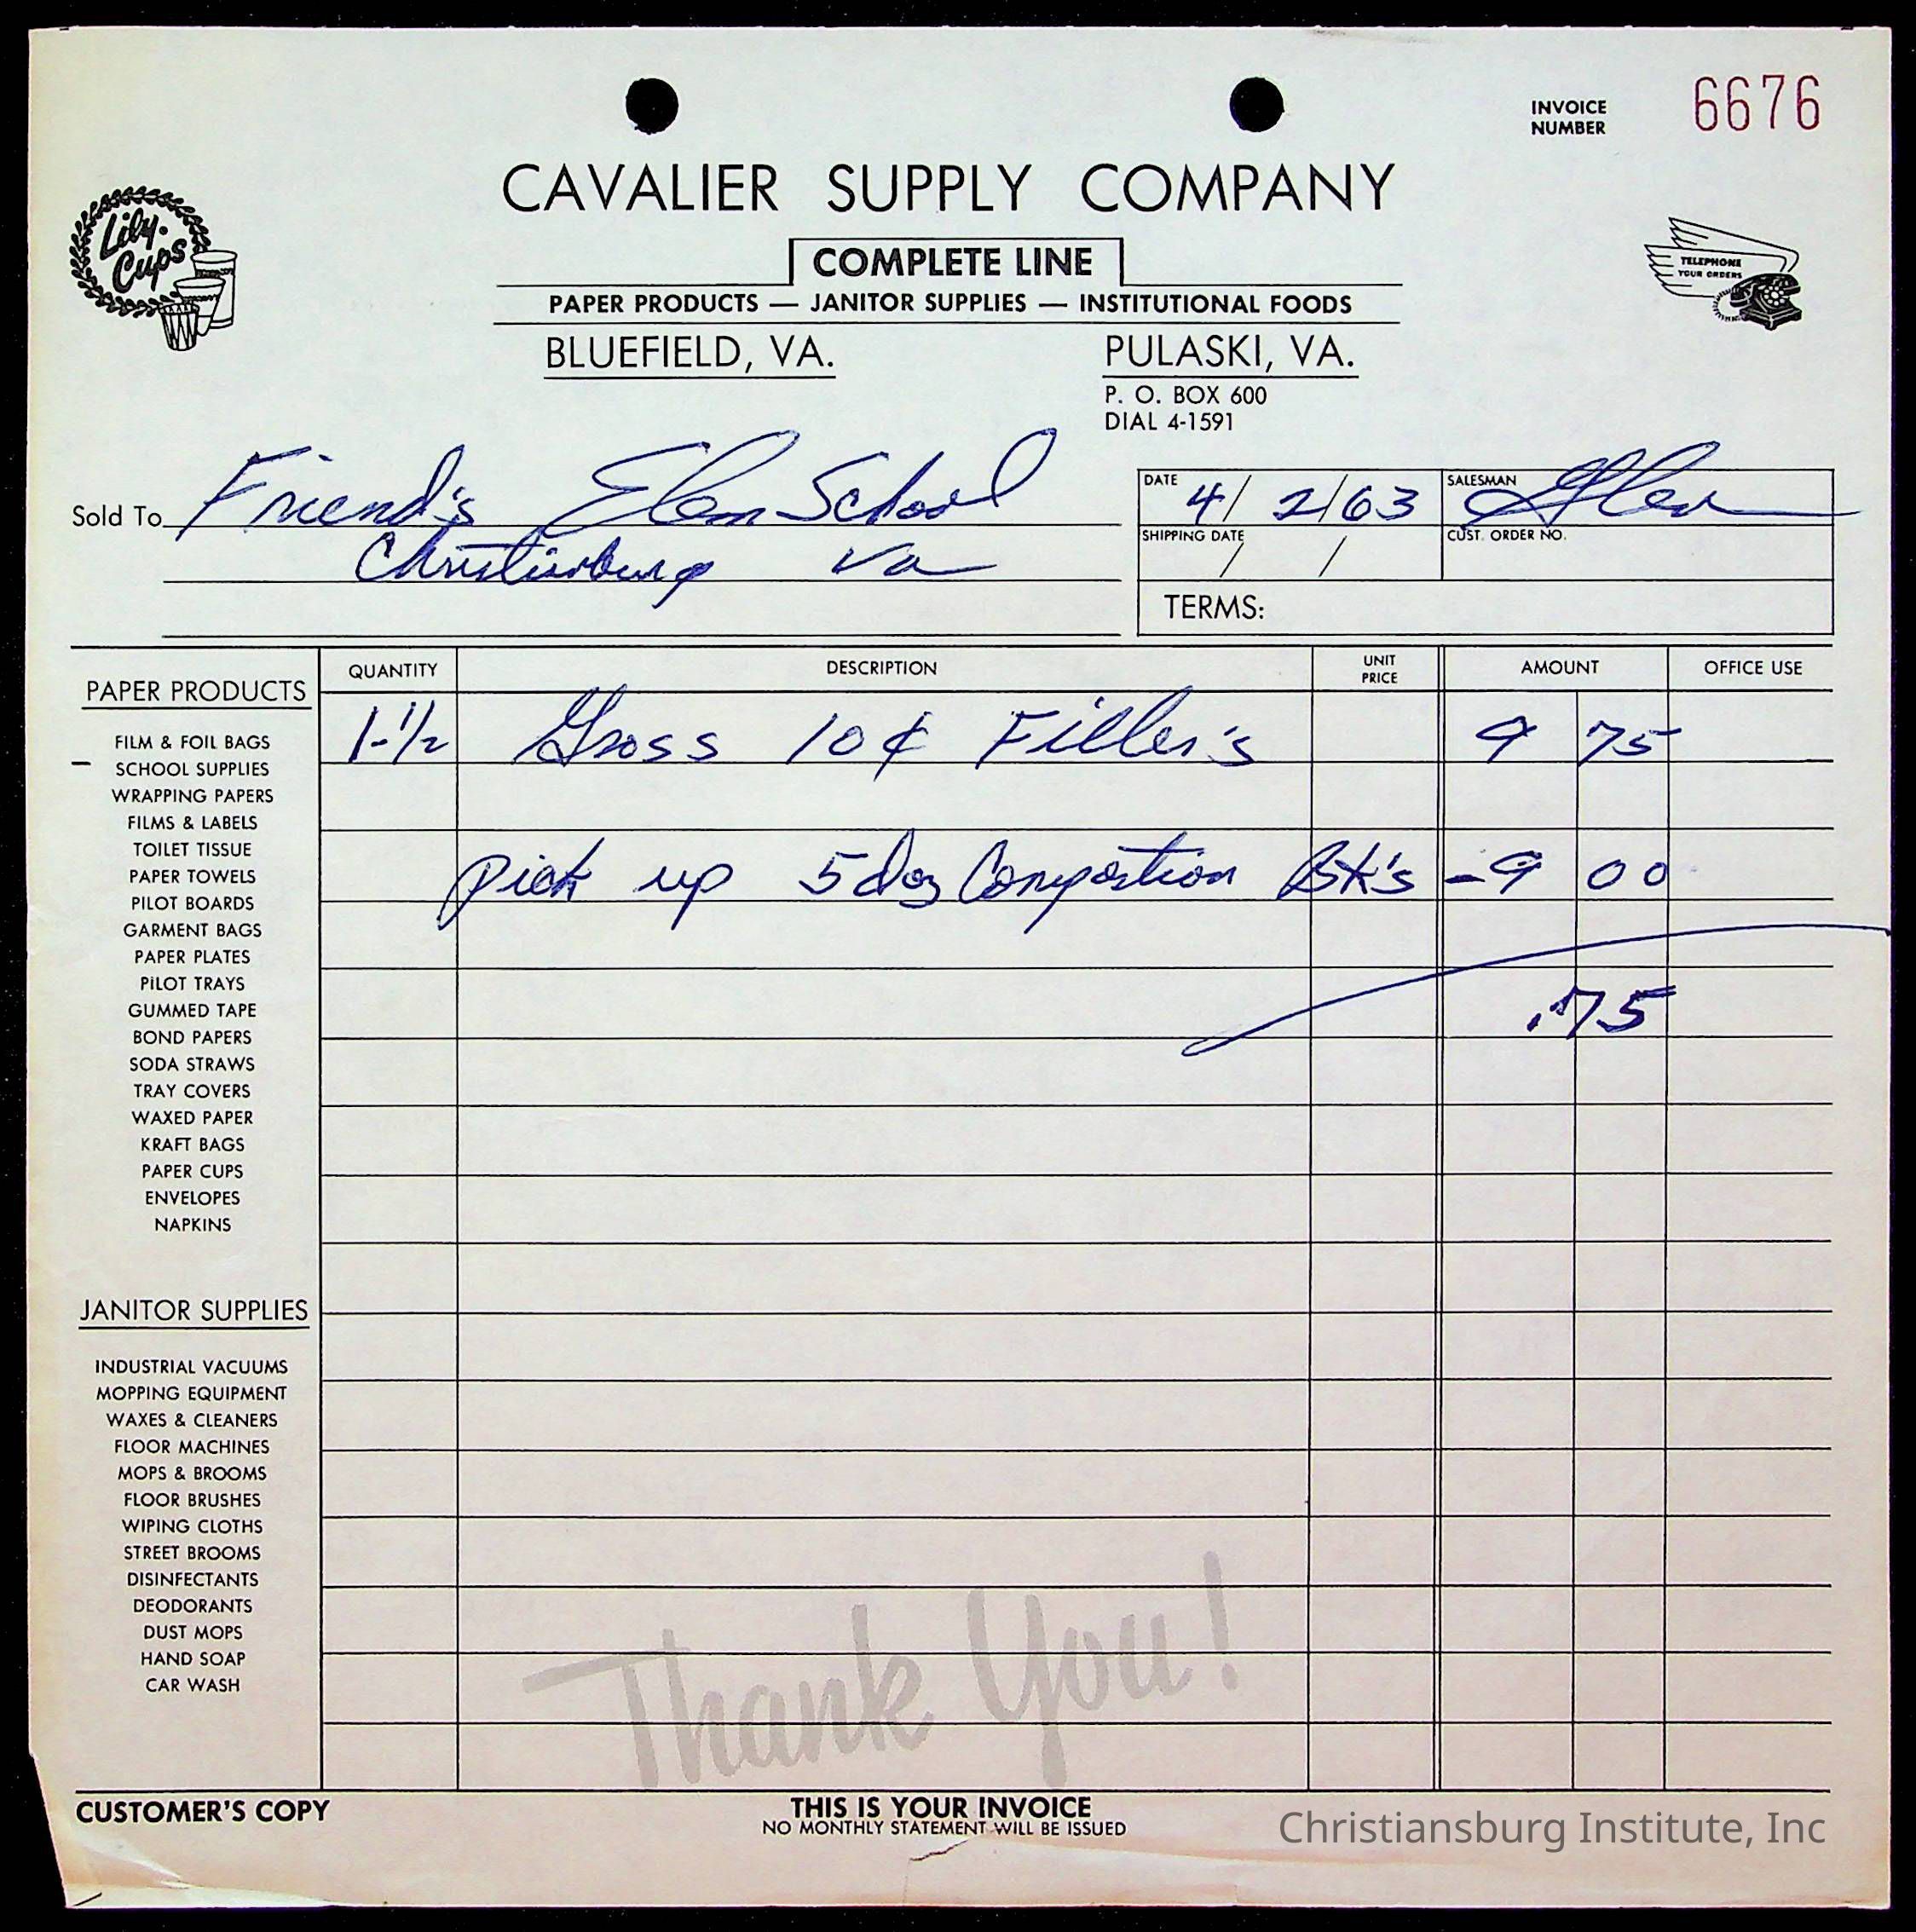 INVOICE
NUMBER
6676
CAVALIER SUPPLY COMPANY
Lily-
Cups
COMPLETE LINE
TELEPHONE
YOUR ORDERS
PAPER PRODUCTS — JANITOR SUPPLIES — INSTITUTIONAL FOODS
BLUEFIELD, VA. PULASKI, VA.
P. O. BOX 600
DIAL 4-1591
Sold To Friend's Elem School
Christiansburg Va
DATE 4/2/63 SALESMAN
SHIPPING DATE / / CUST. ORDER NO.
TERMS:
QUANTITY DESCRIPTION UNIT PRICE AMOUNT OFFICE USE
1-1/2 Gross 10¢ Filler's 9 75
pick up 5 doz Compostion Bk's -9 00
.75
PAPER PRODUCTS
FILM & FOIL BAGS
SCHOOL SUPPLIES
WRAPPING PAPERS
FILMS & LABELS
TOILET TISSUE
PAPER TOWELS
PILOT BOARDS
GARMENT BAGS
PAPER PLATES
PILOT TRAYS
GUMMED TAPE
BOND PAPERS
SODA STRAWS
TRAY COVERS
WAXED PAPER
KRAFT BAGS
PAPER CUPS
ENVELOPES
NAPKINS
JANITOR SUPPLIES
INDUSTRIAL VACUUMS
MOPPING EQUIPMENT
WAXES & CLEANERS
FLOOR MACHINES
MOPS & BROOMS
FLOOR BRUSHES
WIPING CLOTHS
STREET BROOMS
DISINFECTANTS
DEODORANTS
DUST MOPS
HAND SOAP
CAR WASH
Thank You!
CUSTOMER'S COPY
THIS IS YOUR INVOICE
NO MONTHLY STATEMENT WILL BE ISSUED
Christiansburg Institute, Inc